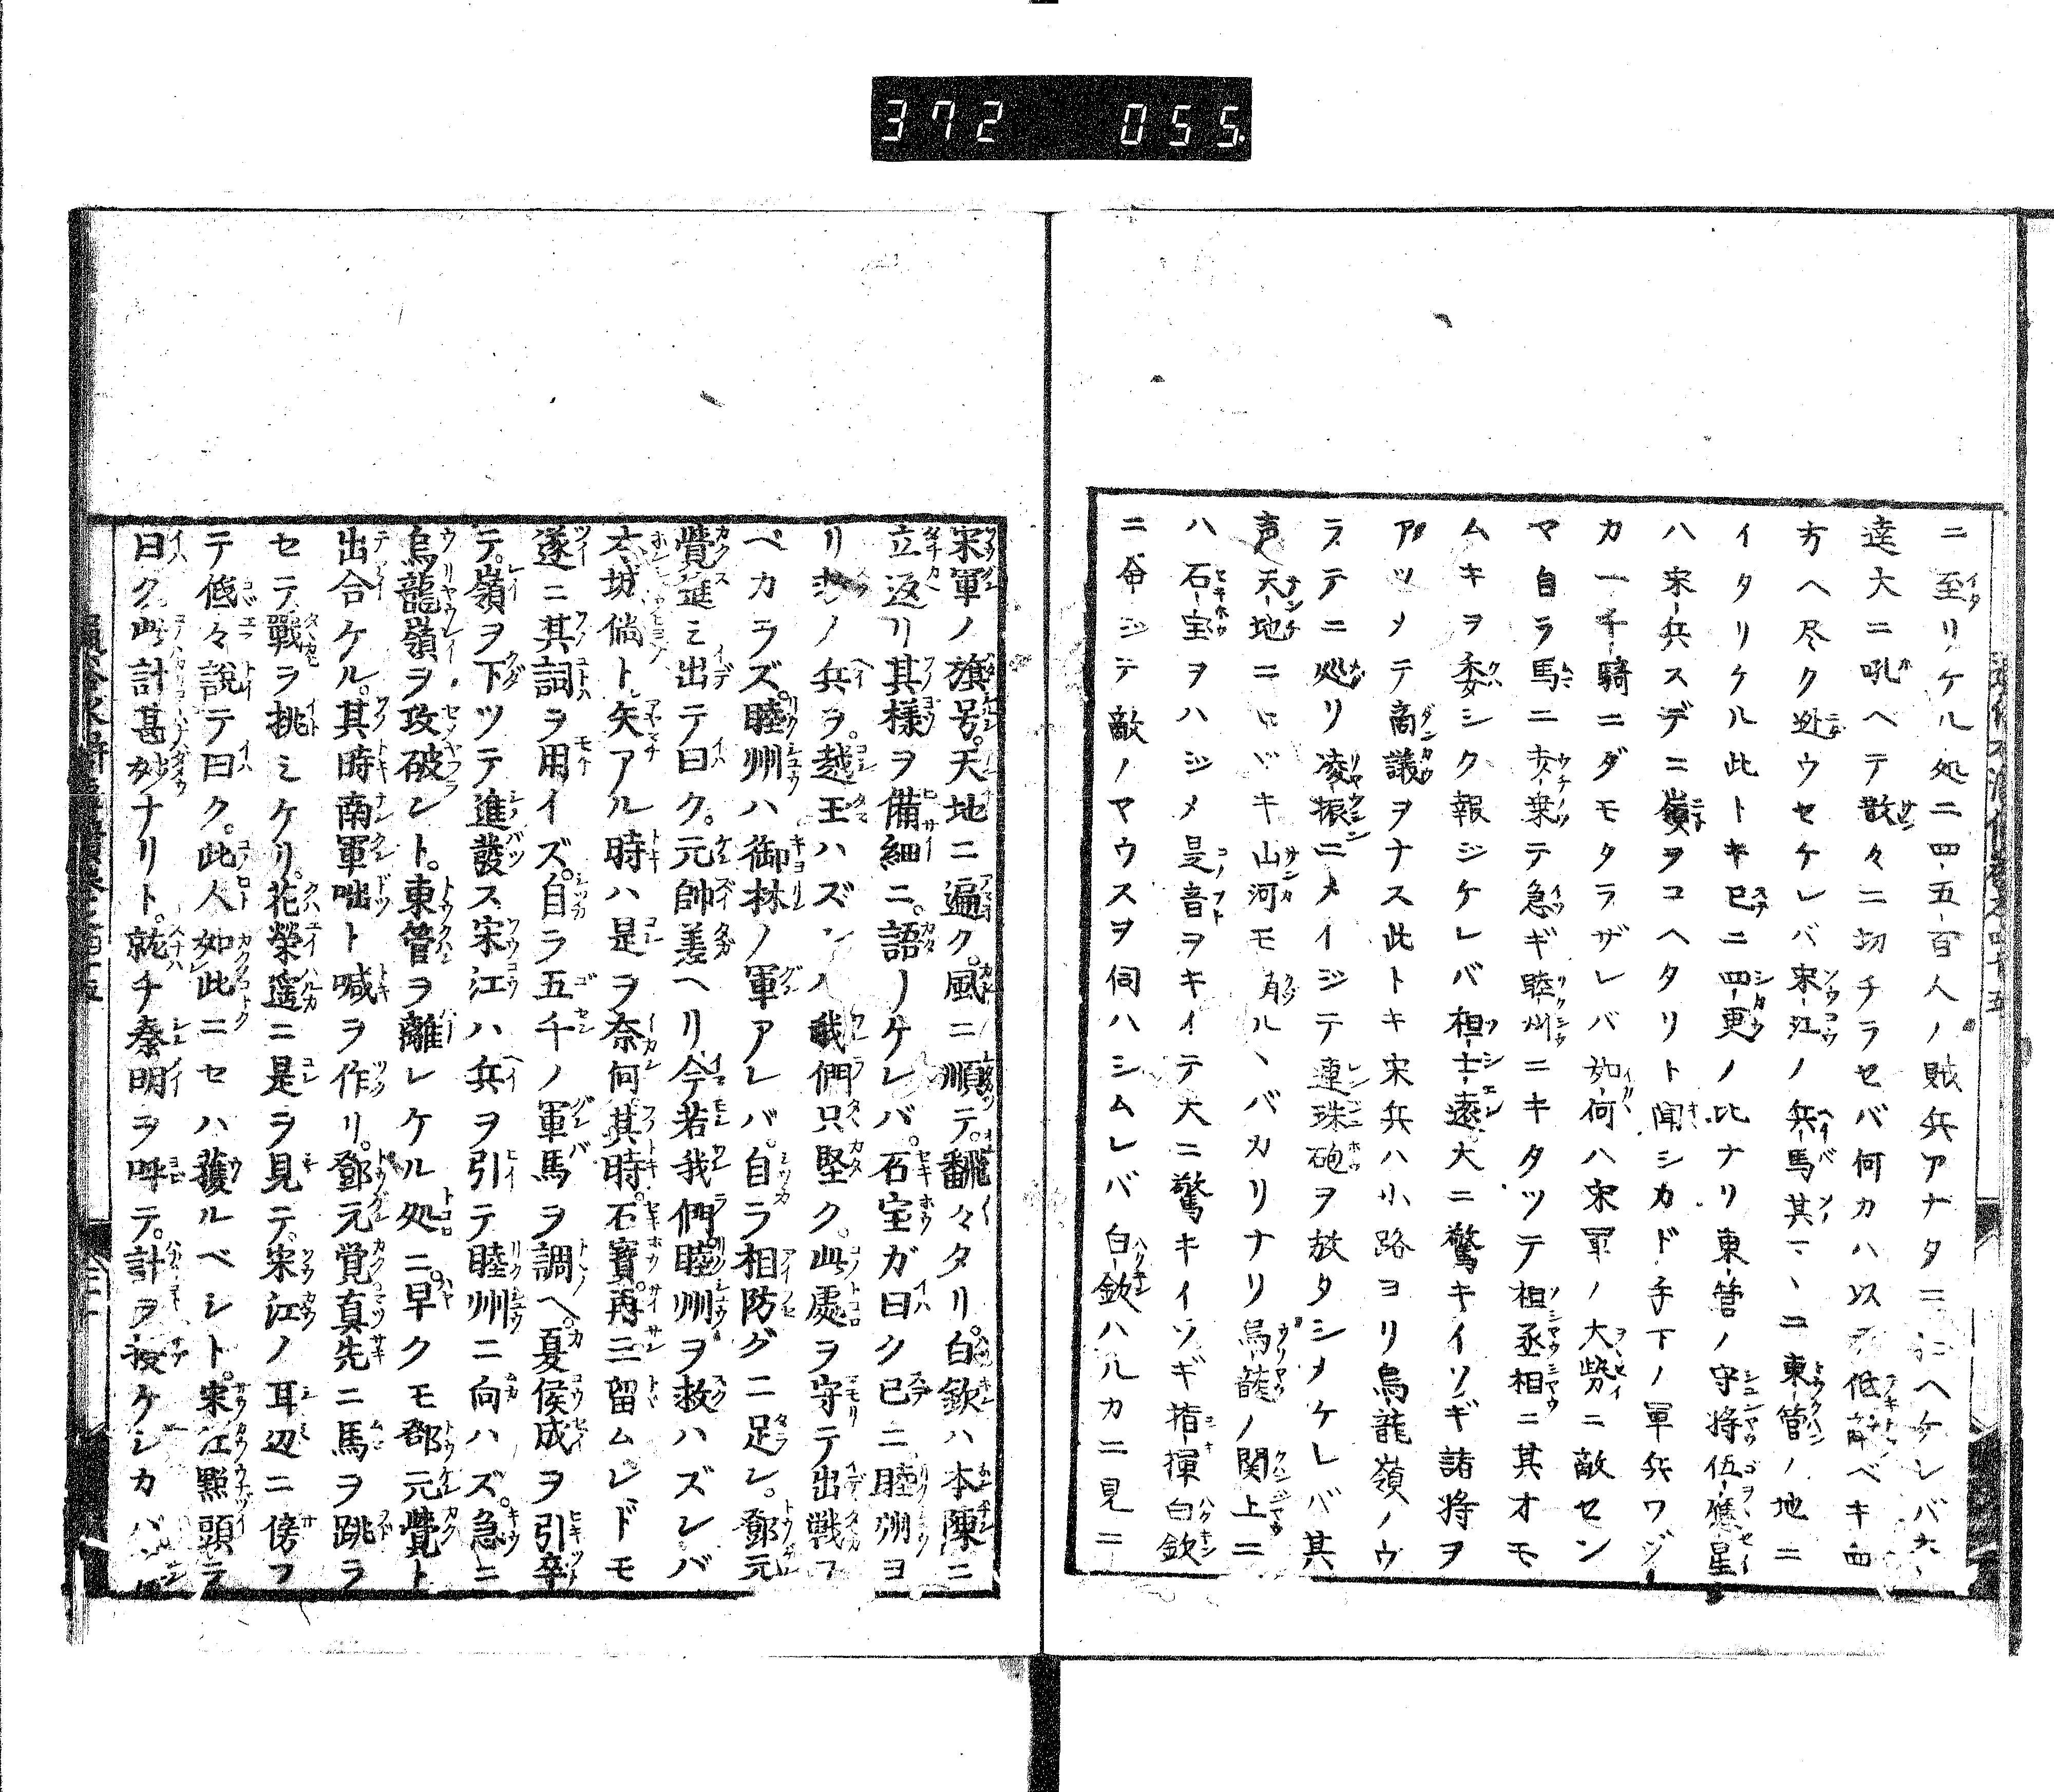 372 055
ニ至リケル処ニ四五百人ノ賊兵アナタニ ヘケレバ
達大ニ吼ヘテ散々ニ切チラセバ何カハ以 ベキ
方ヘ尽ク迯ウセケレバ宋江ノ兵馬其マヽニ東管ノ地ニ
イタリケル此トキ已ニ四更ノ比ナリ東管ノ守将伍應星
ハ宋兵スデニ嶺ヲコヘタリト聞シカド手下ノ軍兵ワヅ
カ一千騎ニダモタラザレバ如何ハ宋軍ノ大勢ニ敵セン
マ自ラ馬ニ 乗テ急ギ睦州ニキタツテ 丞相ニ其オモ
ムキヲ委シク報ジケレバ 士遠大ニ驚キイソギ諸将ヲ
アツメテ商議ヲナス此トキ宋兵ハ小路ヨリ烏龍嶺ノウ
ラテニ処リ凌振ニメイジテ連珠砲ヲ放タシメケレバ其
声天地ニヒヾキ山河モ ルヽバカリナリ烏龍ノ関上ニ
ハ石宝ヲハジメ是音ヲキイテ大ニ驚キイソギ指揮白欽
ニ命ジテ敵ノマウスヲ伺ハシムレバ白欽ハルカニ見ニ
宋軍ノ旗号。天地ニ遍ク。風ニ順テ。飜々タリ。白欽ハ本陳ニ
立返リ其様ヲ備細ニ。語ノケレバ。石宝ガ曰ク已ニ睦洲ヨ
リ ノ兵ヲ。越王ハズンハ我們只堅ク。此處ヲ守テ出戦フ
ベカラズ。睦州ハ御林ノ軍アレバ。自ラ相防グニ足レ。鄧元
覺進ミ出テ曰ク。元帥差ヘリ今若我們。睦州ヲ救ハズレバ
本城倘ト矢アル時ハ是ヲ奈何其時。石寶。再三留ムレドモ
遂ニ其詞ヲ用イズ。自ラ五千ノ軍馬ヲ調ヘ。夏侯成ヲ引卒
テ。嶺ヲ下ツテ進發ス宋江ハ兵ヲ引テ睦州ニ向ハズ。急ニ
烏龍嶺ヲ攻破レト。東管ヲ離レケル処ニ。早クモ鄧元覺ト
出合ケル。其時南軍咄ト喊ヲ作リ。鄧元覚真先ニ馬ヲ跳ラ
セテ戰ヲ挑ミケリ。花榮遥ニ是ヲ見テ。宋江ノ耳辺ニ傍フ
テ低々説テ曰ク。此人如此ニセハ獲ルベシト。宋江點頭テ
曰ク。此計甚妙ナリト。就チ秦明ヲ呼テ。計ヲ授ケシカバ